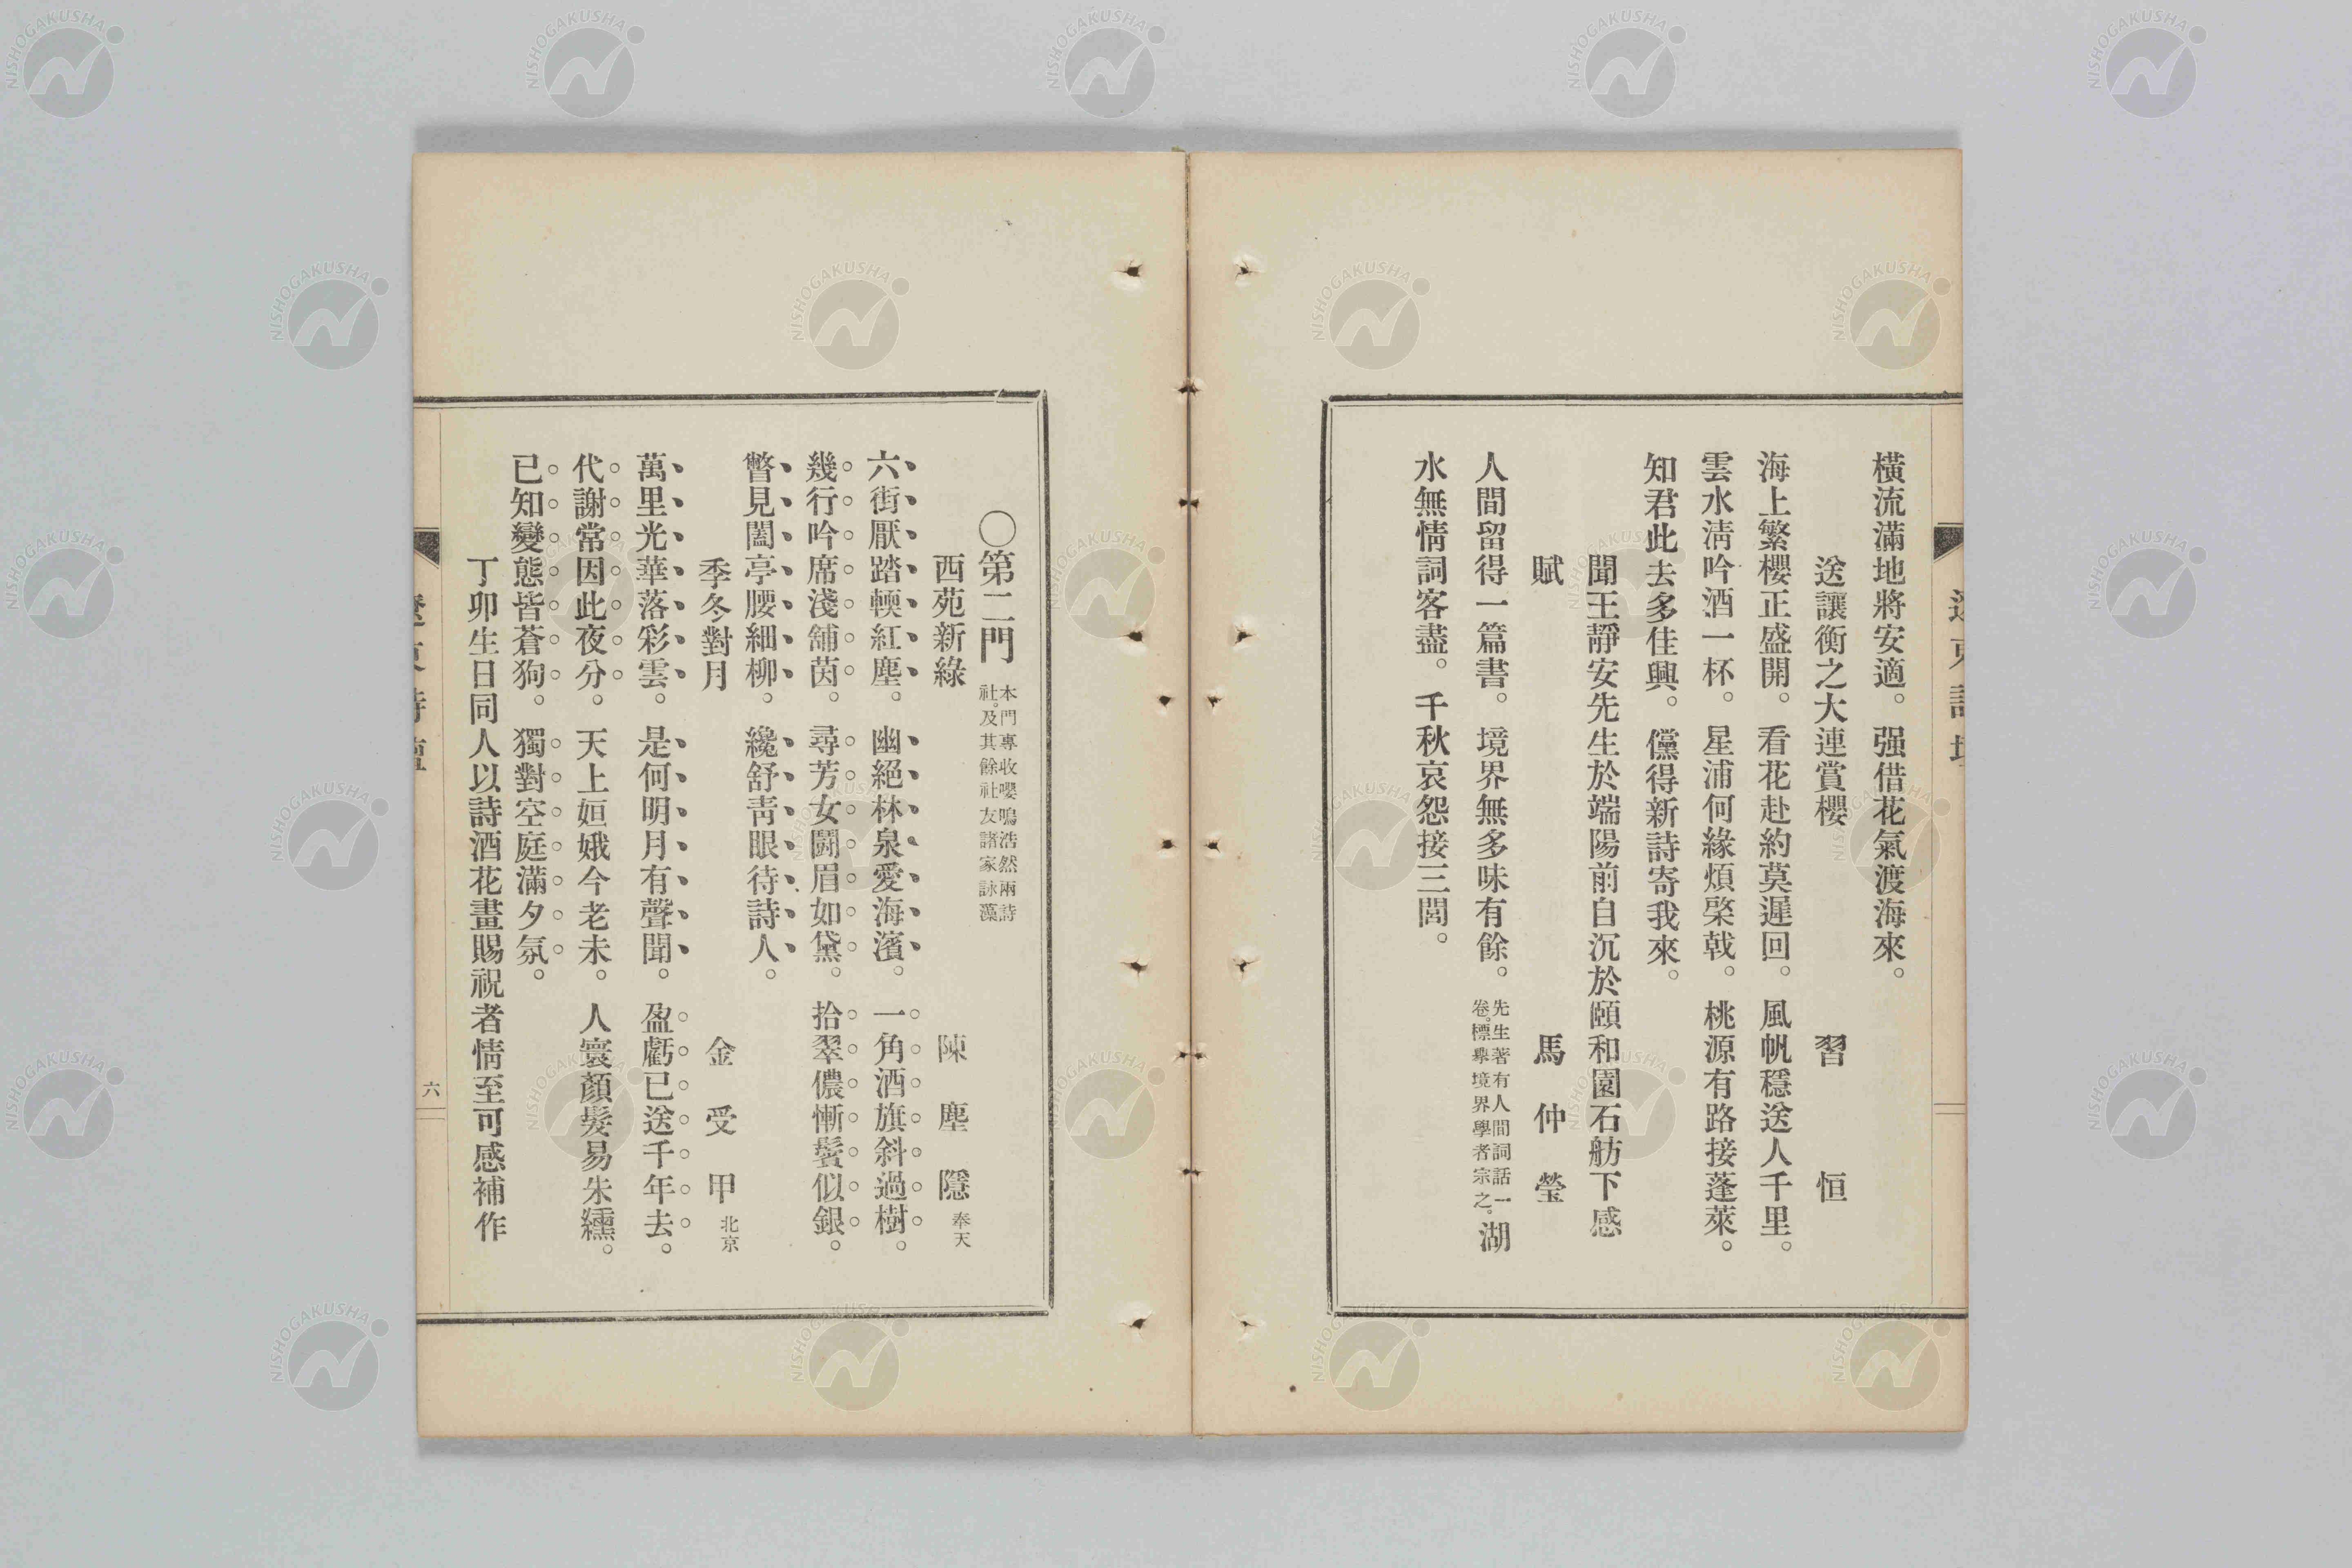 橫流滿地將安適。强借花氣渡海來。
送讓衡之大連賞櫻　習恒
海上繁櫻正盛開。看花赴約莫遲回。風帆穩送人千里。
雲水淸吟酒一杯。星浦何緣煩棨戟。桃源有路接蓬萊。
知君此去多佳興。儻得新詩寄我來。
聞王靜安先生於端陽前自沉於頤和園石舫下感
賦　馬仲瑩
人間留得一篇書。境界無多味有餘。先生著有人間詞話一卷。標擧境界學者宗之。湖
水無情詞客盡。千秋哀怨接三閭。
〇第二門　本門專收嚶鳴浩然兩詩社。及其餘社友諸家詠藻
西苑新綠　陳塵隱　奉天
六街厭踏輭紅塵。幽絕林泉愛海濱。一角酒旗斜過樹。
幾行吟席淺舖茵。尋芳女鬪眉如黛。拾翠儂慚鬢似銀。
瞥見闔亭腰細柳。纔舒靑眼待詩人。
季冬對月　金受甲　北京
萬里光華落彩雲。是何明月有聲聞。盈虧已送千年去。
代謝常因此夜分。天上姮娥今老未。人寰顏髮易朱纁。
已知變態皆蒼狗。獨對空庭滿夕氛。
丁卯生日同人以詩酒花畫賜祝者情至可感補作
六
NISHOGAKUSHA